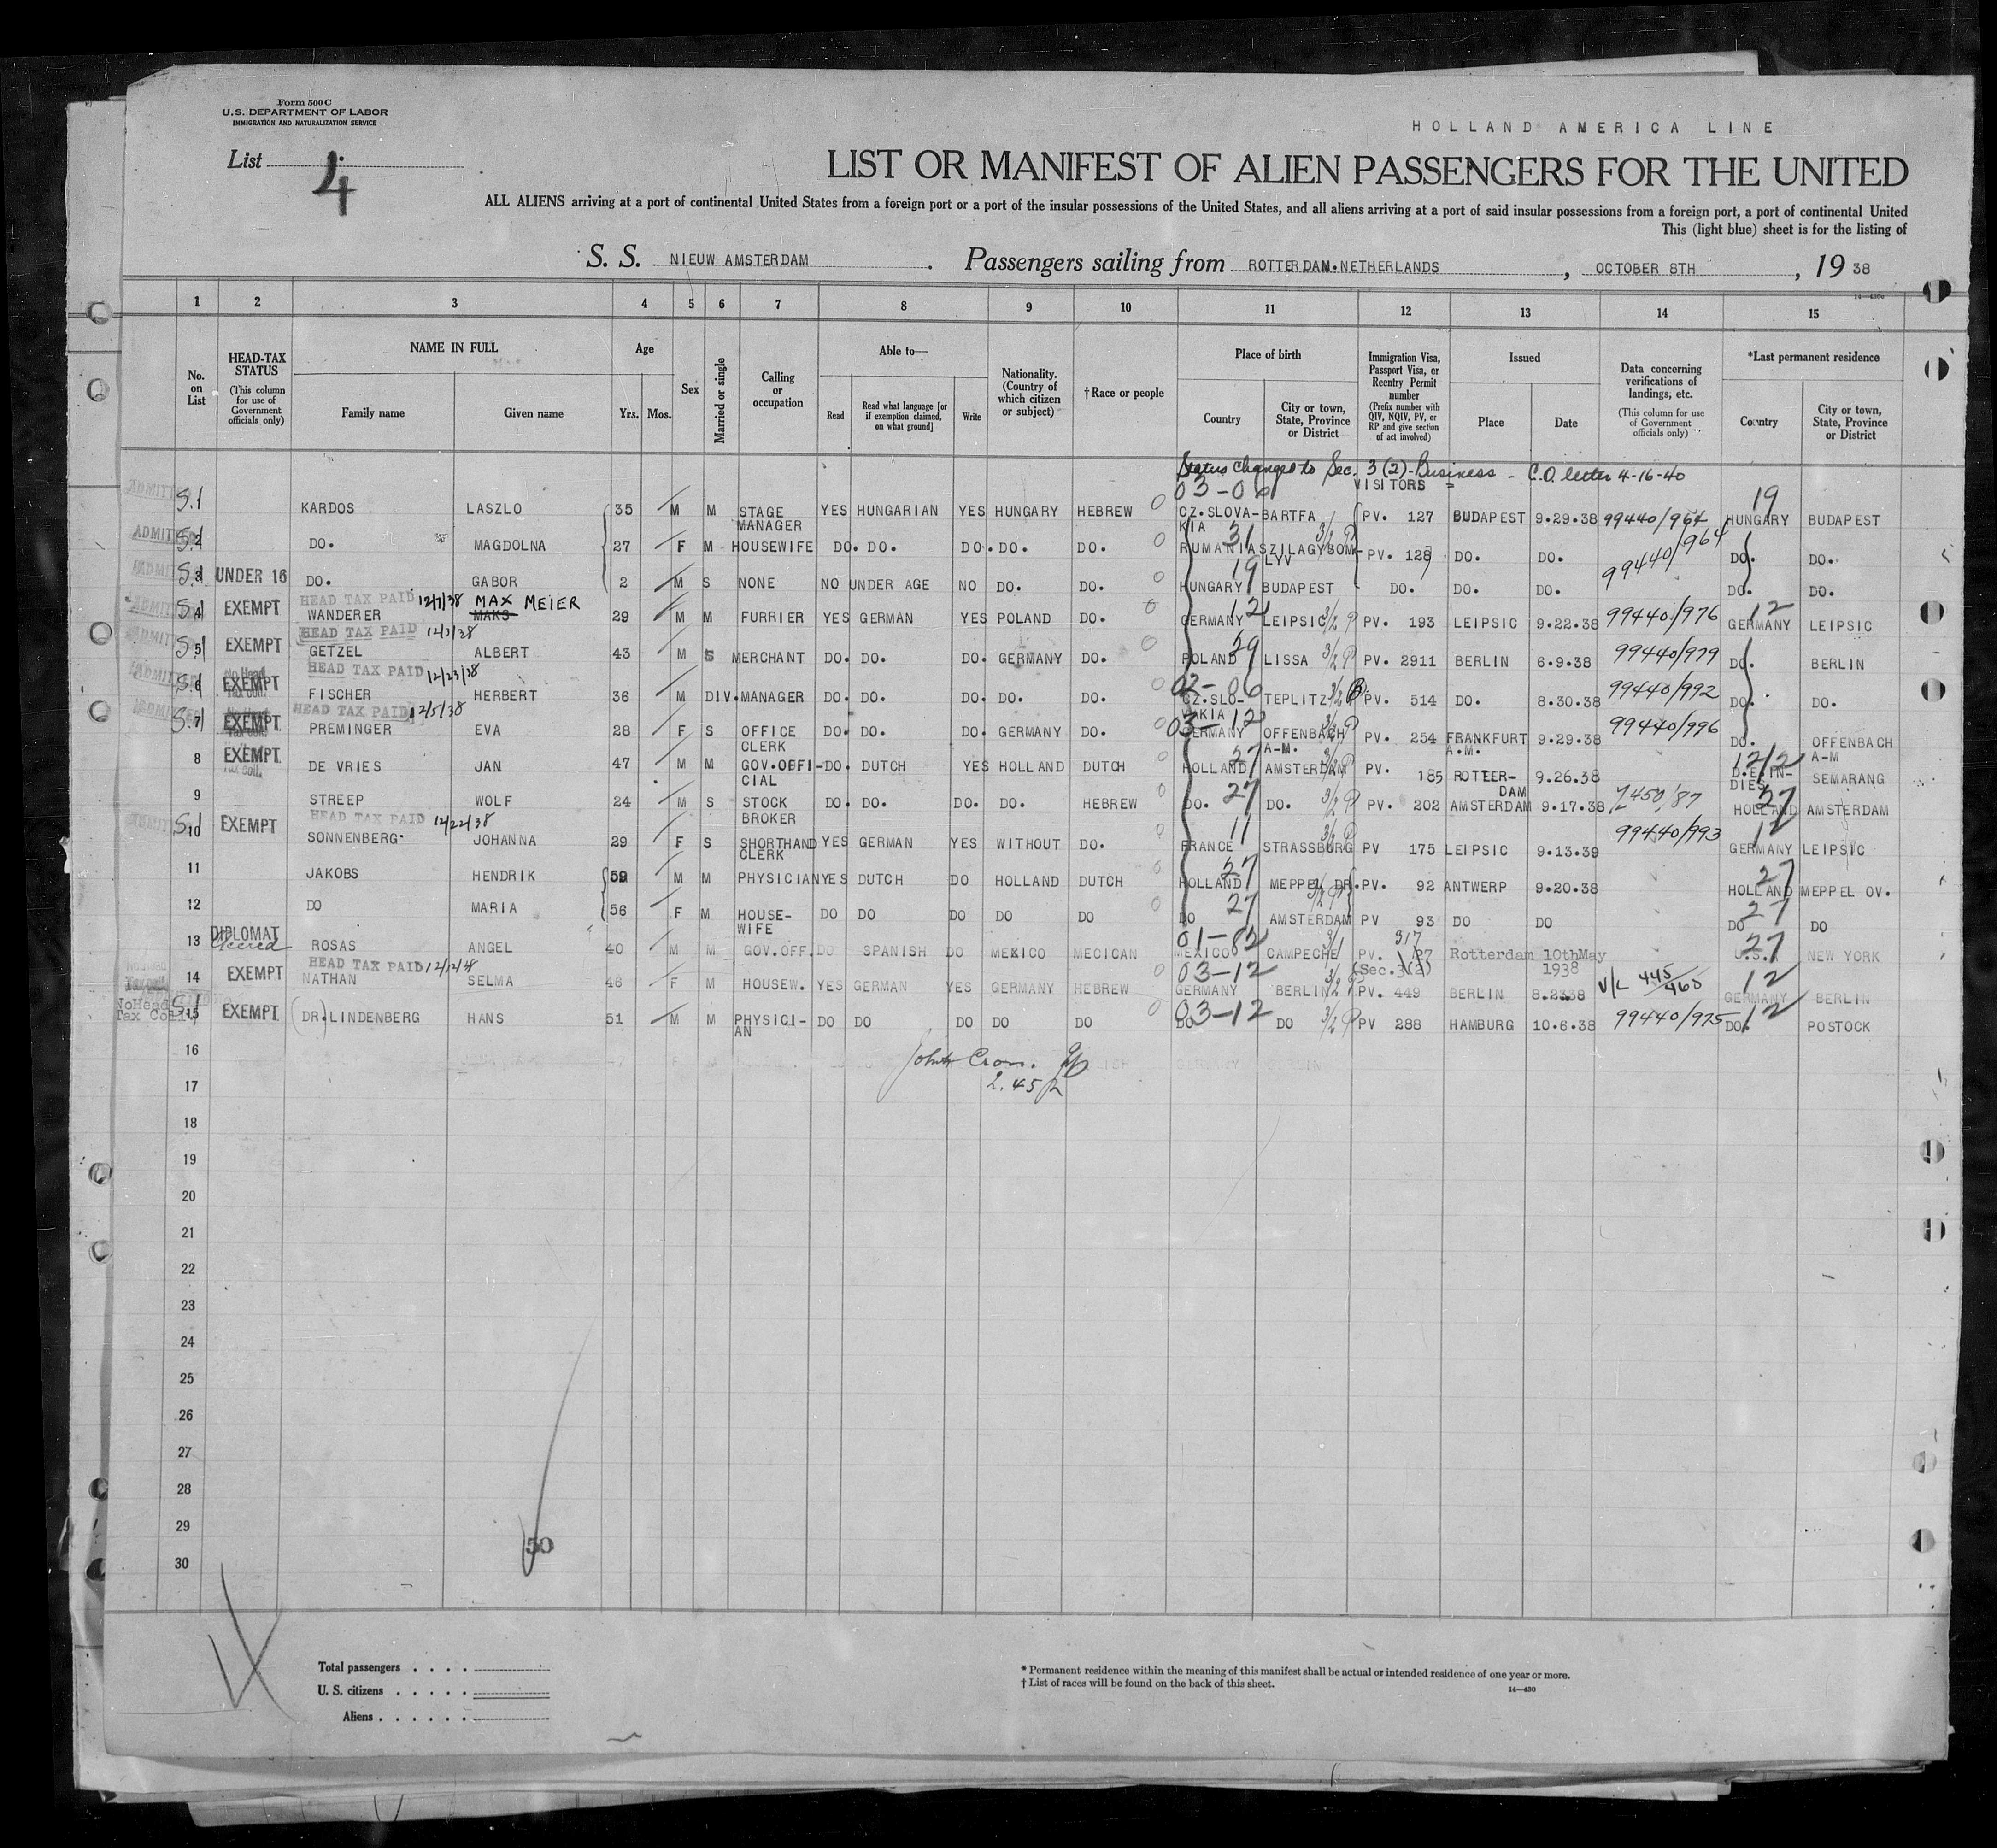 Form 500 C
U.S. DEPARTMENT OF LABOR
IMMIGRATION AND NATURALIZATION SERVICE
HOLLAND AMERICA LINE
List 4
LIST OR MANIFEST OF ALIEN PASSENGERS FOR THE UNITED
ALL ALIENS arriving at a port of continental United States from a foreign port or a port of the insular possessions of the United States, and all aliens arriving at a port of said insular possessions from a foreign port, a port of continental United
This (light blue) sheet is for the listing of
S. S. NIEUW AMSTERDAM. Passengers sailing from ROTTERDAM.NETHERLANDS, OCTOBER 8TH, 19 38
1 2 3 4 5 6 7 8 9 10 11 12 13 14 15
No. on List
HEAD-TAX STATUS (This column for use of Government officials only)
NAME IN FULL
Family name Given name
Age
Yrs. Mos.
Sex
Married or single
Calling or occupation
Able to—
Read
Read what language [or if exemption claimed, on what ground]
Write
Nationality. (Country of which citizen or subject)
†Race or people
Place of birth
Country
City or town, State, Province or District
Immigration Visa, Passport Visa, or Reentry Permit number (Prefix number with QIV, NQIV, PV, or RP and give section of act involved)
Issued
Place Date
Data concerning verifications of landings, etc. (This column for use of Government officials only)
*Last permanent residence
Country
City or town, State, Province or District
Status changed to Sec. 3(2)-Business - C.O. letter 4-16-40
VISITORS
03-06 19
S.1 KARDOS LASZLO 35 M M STAGE MANAGER YES HUNGARIAN YES HUNGARY HEBREW CZ.SLOVAKIA BARTFA PV. 127 BUDAPEST 9.29.38 99440/964 HUNGARY BUDAPEST
31
2 DO. MAGDOLNA 27 F M HOUSEWIFE DO. DO. DO. DO. DO. RUMANIA SZILAGYSOMLYV PV. 128 DO. DO. 99440/964 DO. DO.
19
3 UNDER 16 DO. GABOR 2 M S NONE NO UNDER AGE NO DO. DO. HUNGARY BUDAPEST DO. DO. DO. 99440 DO. DO.
HEAD TAX PAID 12/7/38 MAX MEIER
12 12
4 EXEMPT WANDERER MAKS 29 M M FURRIER YES GERMAN YES POLAND DO. GERMANY LEIPSIC PV. 193 LEIPSIC 9.22.38 99440/976 GERMANY LEIPSIC
HEAD TAX PAID 12/3/38
29
5 EXEMPT GETZEL ALBERT 43 M S MERCHANT DO. DO. DO. GERMANY DO. POLAND LISSA PV. 2911 BERLIN 6.9.38 99440/979 DO. BERLIN
HEAD TAX PAID 12/23/38
02-06
6 EXEMPT FISCHER HERBERT 36 M DIV. MANAGER DO. DO. DO. DO. DO. CZ.SLOVAKIA TEPLITZ PV. 514 DO. 8.30.38 99440/992 DO. DO.
HEAD TAX PAID 12/5/38
03-12
7 EXEMPT PREMINGER EVA 28 F S OFFICE CLERK DO. DO. DO. GERMANY DO. GERMANY OFFENBACH A-M. PV. 254 FRANKFURT A.M. 9.29.38 99440/996 DO. OFFENBACH A-M
27
8 EXEMPT DE VRIES JAN 47 M M GOV.OFFICIAL DO. DUTCH YES HOLLAND DUTCH HOLLAND AMSTERDAM PV. 185 ROTTERDAM 9.26.38 D.E.INDIES SEMARANG
27 27
9 STREEP WOLF 24 M S STOCK BROKER DO. DO. DO. DO. HEBREW DO. DO. PV. 202 AMSTERDAM 9.17.38 HOLLAND AMSTERDAM
HEAD TAX PAID 12/22/38
11 12
10 EXEMPT SONNENBERG JOHANNA 29 F S SHORTHAND CLERK YES GERMAN YES WITHOUT DO. FRANCE STRASSBURG PV 175 LEIPSIC 9.13.39 99440/993 GERMANY LEIPSIC
27 27
11 JAKOBS HENDRIK 59 M M PHYSICIAN YES DUTCH DO HOLLAND DUTCH HOLLAND MEPPEL DR. PV. 92 ANTWERP 9.20.38 HOLLAND MEPPEL OV.
27 27
12 DO MARIA 56 F M HOUSE-WIFE DO DO DO DO DO DO AMSTERDAM PV 93 DO DO DO DO
01-82 317 27
13 DIPLOMAT ROSAS ANGEL 40 M M GOV.OFF. DO SPANISH DO MEXICO MECICAN MEXICO CAMPECHE PV. 27 (Sec.3(2) Rotterdam 10thMay 1938 U.S.A. NEW YORK
HEAD TAX PAID 12/12/38
03-12 12
14 EXEMPT NATHAN SELMA 48 F M HOUSEW. YES GERMAN YES GERMANY HEBREW GERMANY BERLIN PV. 449 BERLIN 8.2338 V/L 445/465 GERMANY BERLIN
No Head Tax Coll.
03-12 12
15 EXEMPT DR. LINDENBERG HANS 51 M M PHYSICIAN DO DO DO DO DO DO DO PV 288 HAMBURG 10.6.38 99440/975 DO. POSTOCK
16
17 2.45 p
18
19
20
21
22
23
24
25
26
27
28
29
50
30
Total passengers . . . .
U. S. citizens . . . . .
Aliens . . . . . .
* Permanent residence within the meaning of this manifest shall be actual or intended residence of one year or more.
† List of races will be found on the back of this sheet.
14—430